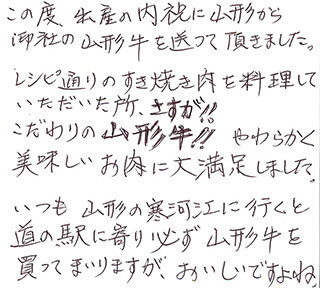 この度、出産の内祝に山形から
御社の山形牛を送って頂きました。
レシピ通りのすき焼き肉を料理して
いただいた所、さすが!!
こだわりの山形牛!! やわらかく
美味しいお肉に大満足しました。
いつも山形の寒河江に行くと
道の駅に寄り必ず山形牛を
買ってまいりますが、おいしいですよね